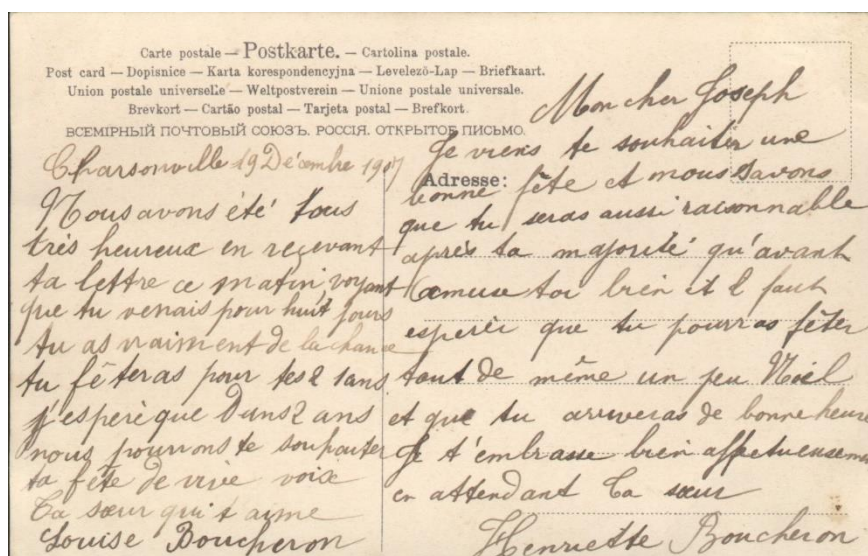 Carte postale — Postkarte. — Cartolina postale.
Post card — Dopisnice — Karta korespondencyjna — Levelezö-Lap — Briefkaart.
Union postale universelle — Weltpostverein — Unione postale universale.
Brevkort — Cartão postal — Tarjeta postal — Brefkort.
ВСЕМІРНЫЙ ПОЧТОВЫЙ СОЮЗЪ. РОССІЯ. ОТКРЫТОЕ ПИСЬМО.
Charsonville 19 Décembre 1907
Nous avons été tous
très heureux en reçevant
ta lettre ce matin, voyant
que tu venais pour huit jours
tu as vraiment de la chance
tu fêteras pour tes 21 ans
j'espère que dans 2 ans
nous pourrons te souhaiter
ta fête de vive voix
Ta sœur qui t'aime
Louise Boucheron
Adresse:
Mon cher Joseph
Je viens te souhaiter une
bonne fête et nous savons
que tu seras aussi raisonnable
après ta majorité qu'avant
amuse toi bien et il faut
espérer que tu pourras fêter
tout de même un peu Noël
et que tu arriveras de bonne heure
Je t'embrasse bien affectueusement
en attendant Ta sœur
Henriette Boucheron